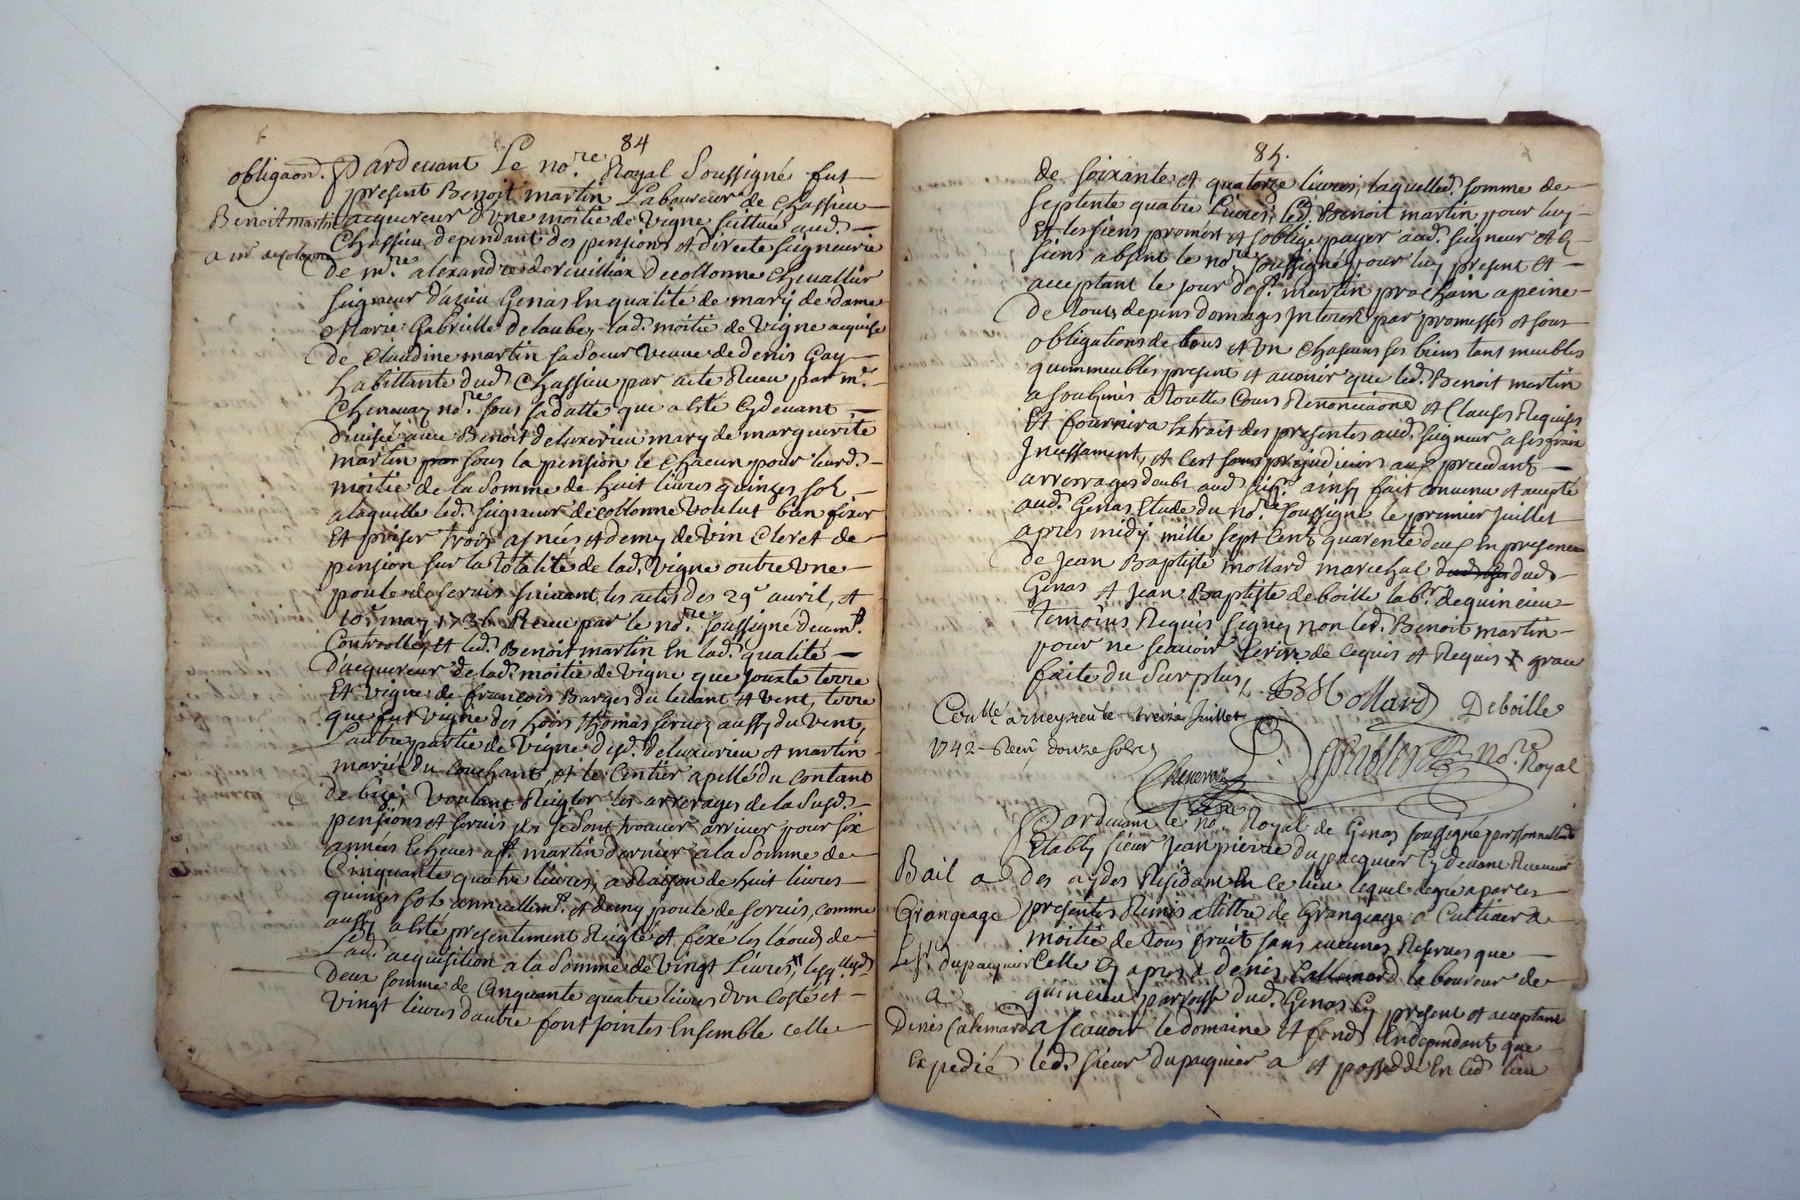 84
obligaon.
Benoit martin
a mr. de colonne
Pardevant Le nore. Royal Soussigné fut
present Benoit martin Laboureur de Chassieu
acquereur d'vne moitié de vigne scittuée aud.
Chassieu dependant des pensions et directe seigneurie
de mre. alexandre de collonne Chevallier
seigneur d'azieu Genas En qualité de mary de dame
Marie Gabrielle Delaube, lad. moitié de vigne acquise
de Claudine martin sa soeur veuve de denis Gay
habittante dud. Chassieu par acte Receu par mr.
Chenevaz nore. sous sa datte que a Esté Cydevant
divisée avec Benoit deluxerieu mary de marguerite
martin par sous la pension le chacun pour leurd.
moitié de la somme de huit livres quinzes sol
a laquelle led. seigneur de collonne voulut bien fixer
Et priser trois asnées et demy de vin Cleret de
pension sur la totalité de lad. vigne outre vne
poule de servis suivant les actes des 29e avril, et
10e. may 1736 Receu par le nore. soussigné deumt.
Controllés, Et led. Benoit martin En lad. qualité
d'acquereur de lad. moitié de vigne que jouxte terre
Et vigne de francois Barges du levant et vent, terre
que fut vigne des hoirs thomas servoz aussy du vent,
Lautre partie de vigne dud. Deluxerieu et martin
mariés du couchant, et le sentier apellé du contant
de bize, voulant Reigler les arrerages de la susd.
pensions et servis ils se sont trouver arriver pour six
années Echeues a st. martin dernier a la somme de
Cinquante quatre livres, a Raison de huit livres
quinzes sols annuellemt. et demy poule de servis, comme
aussy a esté presentement Reiglé et fixé les laouds de
Lad. acquisition a la somme de vingt Livres, lesqlles
deux somme de Cinquante quatre livres d'vn costé et
vingt livres d'autre font jointes Ensemble celle
85.
de soixante et quatorze livres, laquelled. somme de
septente quatre Livres, led. Benoit martin pour luy
Et les siens promest et soblige payer aud. seigneur et aux
siens absent le nore. soussigné pour luy present et
acceptant le jour de st. martin prochain a peine
de tous depens domages Interest par promesses et sous
obligations de tous et vn chascuns ses biens tant meubles
quimmeubles present et avenir que led. Benoit martin
a soubmis a toutte Cours Renonciaons et Clauses Requises
Et fournira Extrait des presentes aud. seigneur a ses frais
Incessament, et cest sans prejudicier aux precedant
arrerages deubs aud. sigr. ainsy fait convenu et accepté
aud. Genas Etude du nore. soussigné le premier juillet
apres midy mille sept Cent quarente deux En presence
de jean Baptiste mollard marechal dud.
Genas et jean Baptiste deboille labr. de quincieu
temoins Requis signez non led. Benoit martin
pour ne scavoir Ecrire de ce quis et Requis
faite du surplus,
JB Mollard Deboille
Conllé a meyzieu le treize juillet
1742 Receu douze sols
Chenevaz
nore. Royal
Bail a
Grangeage
Le sr. dupacquier
a
Denis Calemard
Expedié
Pardevant le nore. Royal de Genas soussigné personnellemt
Estably sieur jean pierre dupacquier Cy devant Receveur
des aydes Residant En ce lieu lequel de gré a par ces
presentes Remis a tittre de Grangeage a Cultiver a
moitié de tous fruit sans aucunes Reserves que
celle Cy apres a denis Callemard laboureur de
quincieu parroisse dud. Genas Cy present et acceptant
a scavoir le domaine et fonds Endependant que
led. sieur dupacquier a et possede En led. lieu